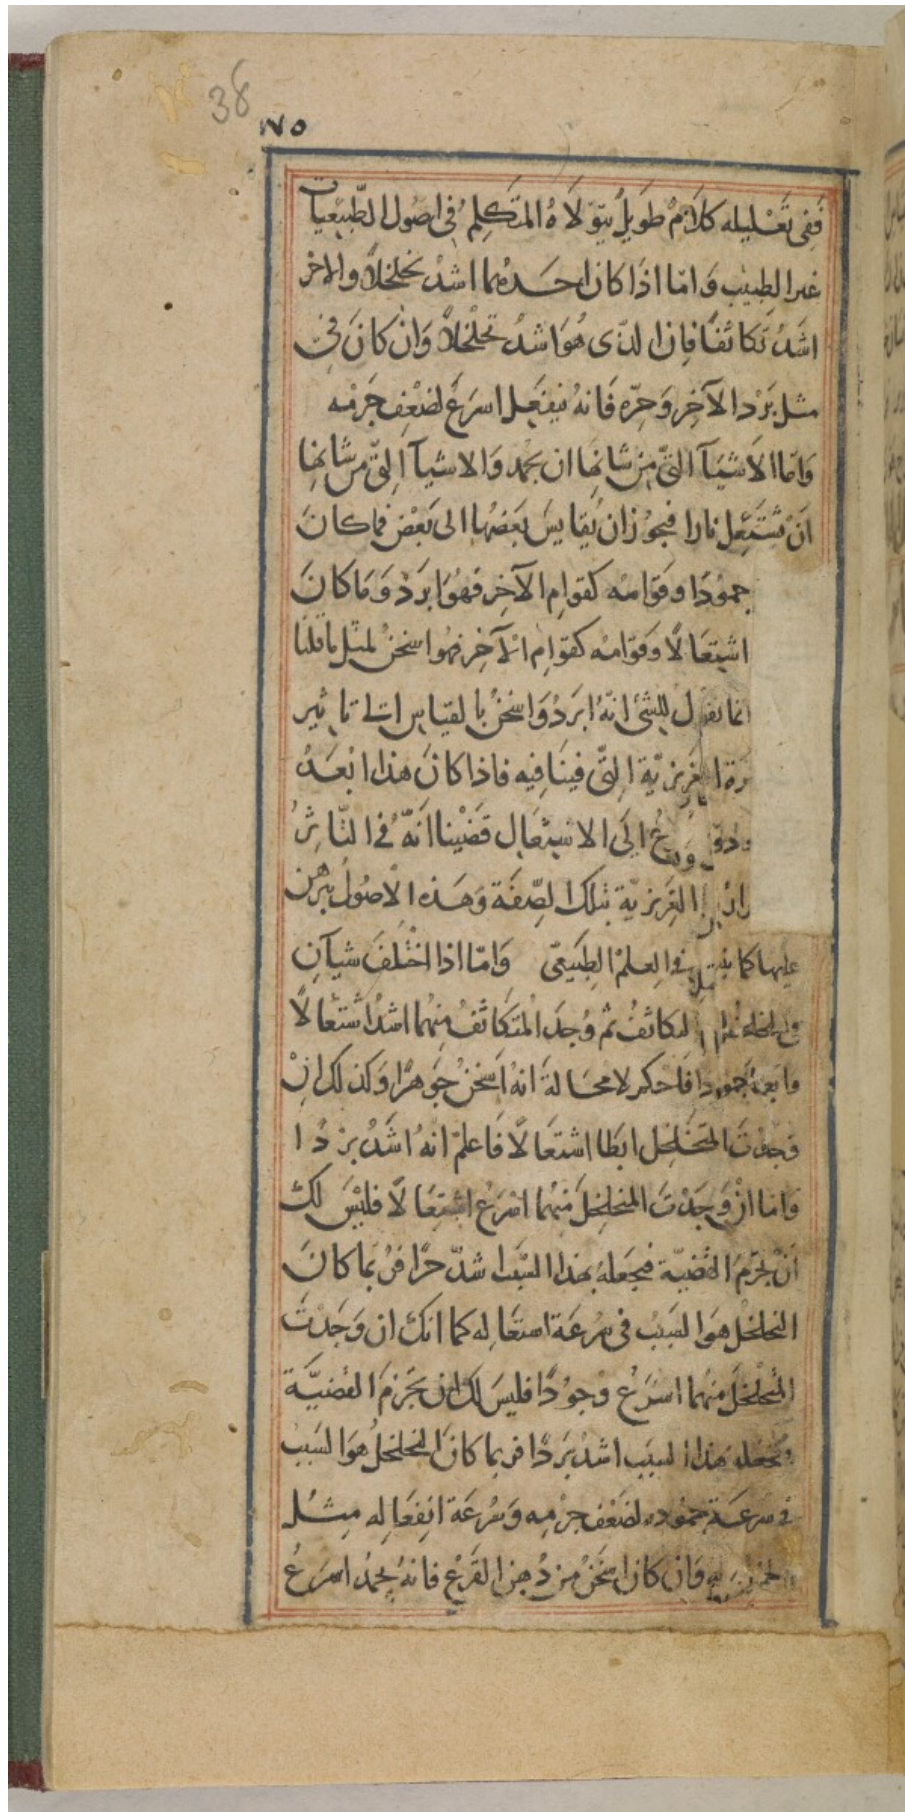 38
١٧٥
ففى تعليله كلام طويل يتولاه المتكلم فى اصول الطبيعيات
غير الطبيب واما اذا كان احدهما اشد تخلخلا والاخر
اشد تكاثفا فان الذى هو اشد تخلخلا وان كان فى
مثل برد الآخر وحره فانه ينفعل اسرع لضعف جرمه
واما الاشيآ التى من شانها ان يجمد والاشيآ التى من شانها
ان تشتعل نارا فيجوز ان يقايس بعضها الى بعض فما كان
جمودا وقوامه كقوام الآخر فهو ابرد وما كان
اشتعالا وقوامه كقوام الآخر فهو اسخن لمثل ما قلنا
انما نقول للشئ انه ابرد واسخن بالقياس الى تاثير
الغريزية التى فينا فيه فاذا كان هذا ابعد
الى الاشتعال قضينا انه فى التاثر
الغريزية بتلك الصفة وهذه الاصول يبرهن
عليها كما ينبغى فى العلم الطبيعى واما اذا اختلف شيآن
فى التخلخل التكاثف ثم وجد المتكاثف منهما اشد اشتعالا
وابعد جمودا فاحكم لا محالة انه اسخن جوهرا وكذلك ان
وجدت المتخلخل ابطا اشتعالا فاعلم انه اشد بردا
واما ان وجدت المتخلخل منهما اسرع اشتعالا فليس لك
ان تجزم القضية فيجعله بهذا السبب اشد حرا فربما كان
التخلخل هو السبب فى سرعة اشتعاله كما انك ان وجدت
المتخلخل منهما اسرع وجودا فليس لك ان تجزم القضية
وتجعله هذا السبب اشد بردا فربما كان التخلخل هو السبب
فى سرعة جموده لضعف جرمه وسرعة انفعاله مثل
وان كان اسخن من دهن القرع فانه يجمد اسرع